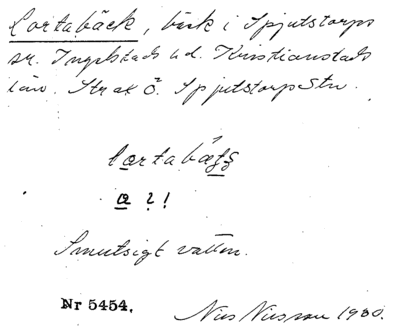 Lortabäck, bäck i Spjutstorps
sn. Ingelstads hd. Kristianstads
län. Strax ö. Spjutstorps stn.
lortabæʆʂ
ɑ ? !
Smutsigt vatten.
Nr 5454.
Nils Nilsson 1930.